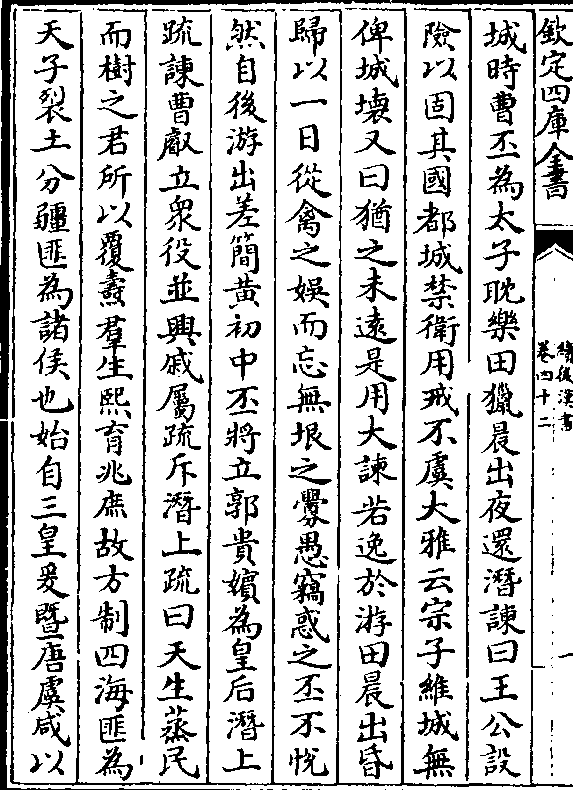 欽定四庫全書
續後漢書
卷四十二
城時曹丕為太子耽樂田獵晨出夜還潛諫曰王公設
險以固其國都城禁衛用戒不虞大雅云宗子維城無
俾城壞又曰猶之未遠是用大諫若逸於游田晨出昏
歸以一日從禽之娛而忘無垠之釁愚竊惑之丕不悅
然自後游出差簡黃初中丕將立郭貴嬪為皇后潛上
疏諫曹叡立衆役並興戚屬疏斥潛上疏曰天生蒸民
而樹之君所以覆燾羣生熙育兆庶故方制四海匪為
天子裂土分疆匪為諸侯也始自三皇爰暨唐虞咸以